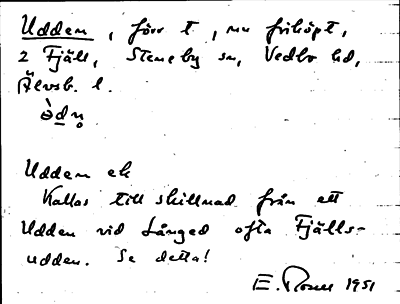 Udden, förr t, nu friköpt,
2 Fjäll, Steneby sn, Vedbo hd,
Älvsb. l.
Udden ek
Kallas till skillnad från ett
Udden vid Långed ofta Fjälls-
udden. Se detta!
E. 1951